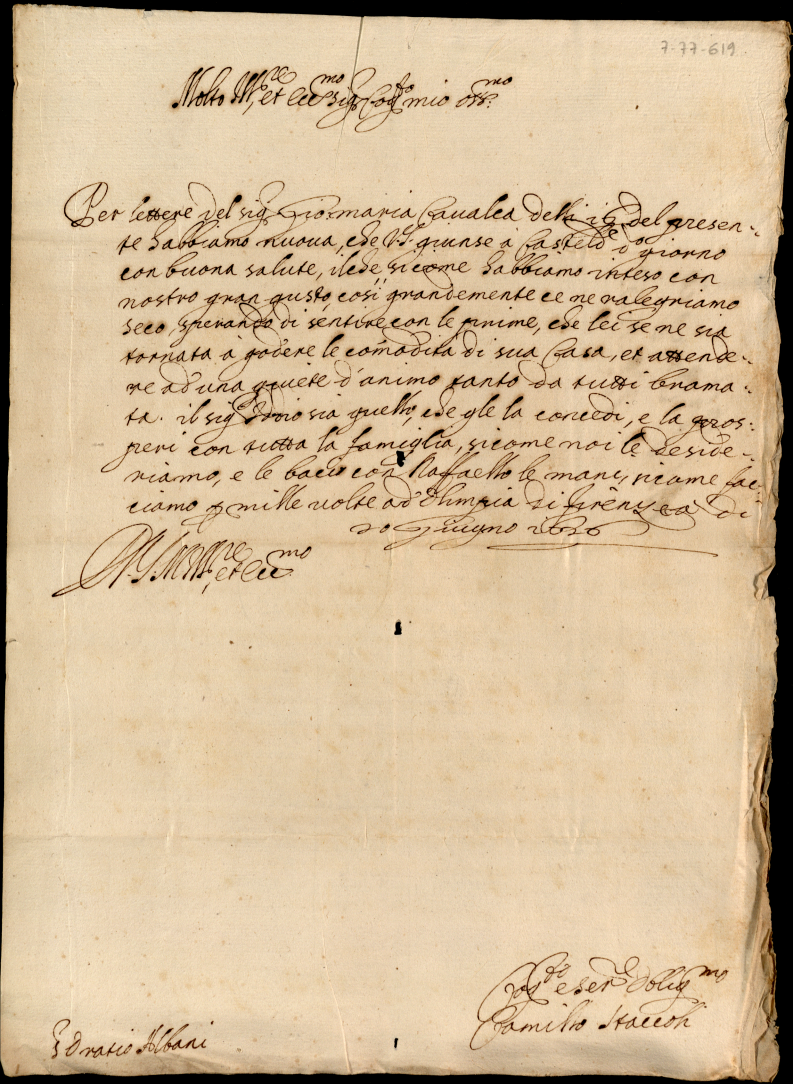 7-77-619
Molto Ill.re et ecc.mo Sig.r Cog.to mio oss.mo
Per lettere del sig. Giosmaria Caualca delli 15 del presen-
te habbiamo nuoua, che V.S. giunse à Casteld.te dº giorno
con buona salute, il che, sicome habbiamo inteso con
nostro gran gusto, così grandemente ce ne ralegriamo
seco, sperando di sentire con le prime, che lei se ne sia
tornata à godere le comodità di sua Casa, et attende-
re ad una quiete d'animo tanto da tutti brama-
ta. il sig. Iddio sia quello, che gle la concedi, e la pros-
peri con tutta la famiglia, sicome noi le deside-
riamo, e le bacio con Raffaello le mani, sicome fac-
ciamo p mille uolte ad Olimpia di firenzea di
20 Giugno 1636
D V.S. Molto Ill.re et ecc.mo
Cog.to e ser.re oblig.mo
Camillo Staccoli
S Oratio Albani